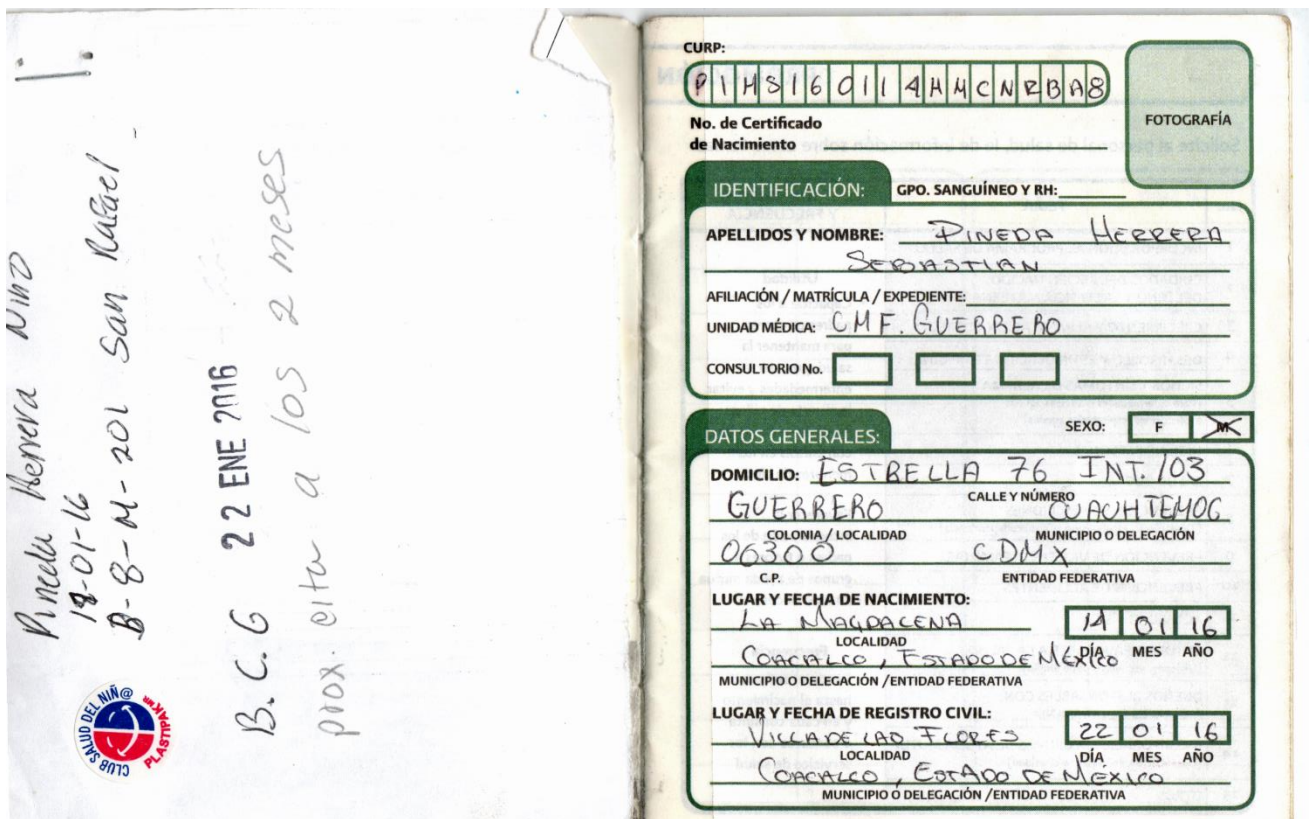 Pineda Herrera Niño
18-01-16
B-8-M-201 San Rafael
B.C.G 22 ENE 2016
prox. cita a los 2 meses
CLUB SALUD DEL NIÑ@
PLASTIPAK MR
CURP:
PIHS160114HMCNRBA8
No. de Certificado
de Nacimiento
FOTOGRAFÍA
IDENTIFICACIÓN: GPO. SANGUÍNEO Y RH:
APELLIDOS Y NOMBRE: PINEDA HERRERA
SEBASTIAN
AFILIACIÓN / MATRÍCULA / EXPEDIENTE:
UNIDAD MÉDICA: CMF. GUERRERO
CONSULTORIO No.
DATOS GENERALES: SEXO: F M
DOMICILIO: ESTRELLA 76 INT. 103
CALLE Y NÚMERO
GUERRERO CUAUHTEMOC
COLONIA / LOCALIDAD MUNICIPIO O DELEGACIÓN
06300 CDMX
C.P. ENTIDAD FEDERATIVA
LUGAR Y FECHA DE NACIMIENTO:
LA MAGDALENA 14 01 16
LOCALIDAD DÍA MES AÑO
COACALCO, ESTADO DE MÉXICO
MUNICIPIO O DELEGACIÓN /ENTIDAD FEDERATIVA
LUGAR Y FECHA DE REGISTRO CIVIL:
VILLA DE LAS FLORES 22 01 16
LOCALIDAD DÍA MES AÑO
COACALCO, ESTADO DE MÉXICO
MUNICIPIO O DELEGACIÓN /ENTIDAD FEDERATIVA